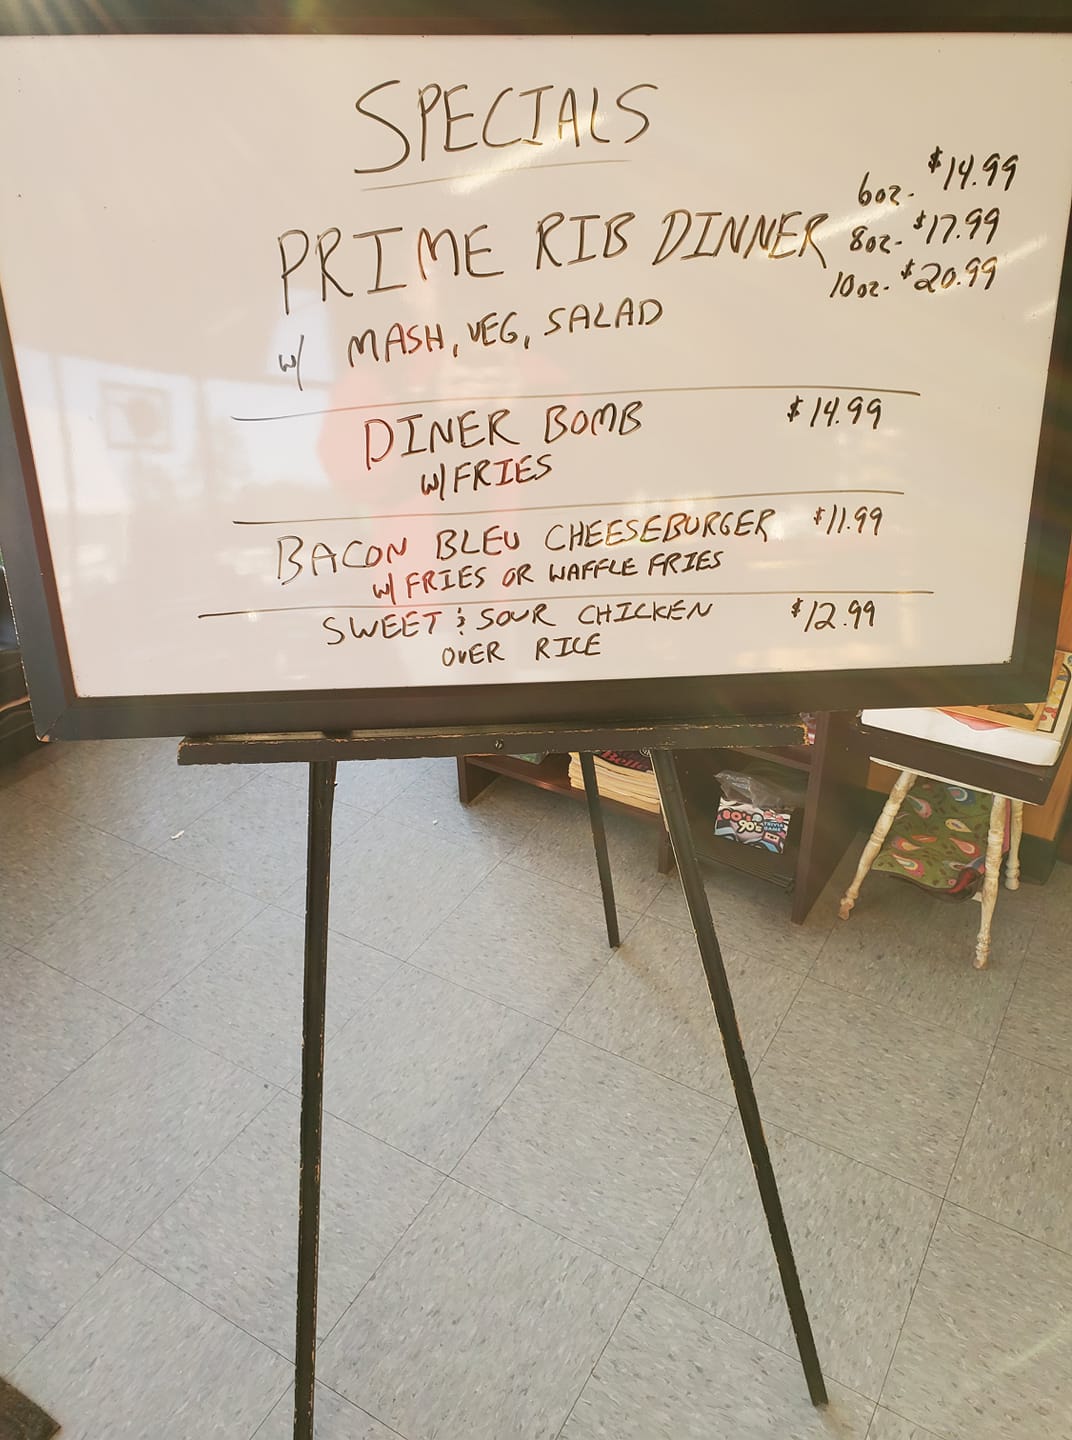 SPECIALS
PRIME RIB DINNER
6oz- $14.99
8oz- $17.99
10oz- $20.99
w/ MASH, VEG, SALAD
DINER BOMB $14.99
w/FRIES
BACON BLEU CHEESEBURGER $11.99
w/ FRIES OR WAFFLE FRIES
SWEET & SOUR CHICKEN $12.99
OVER RICE
80's
90's TRIVIA
GAME